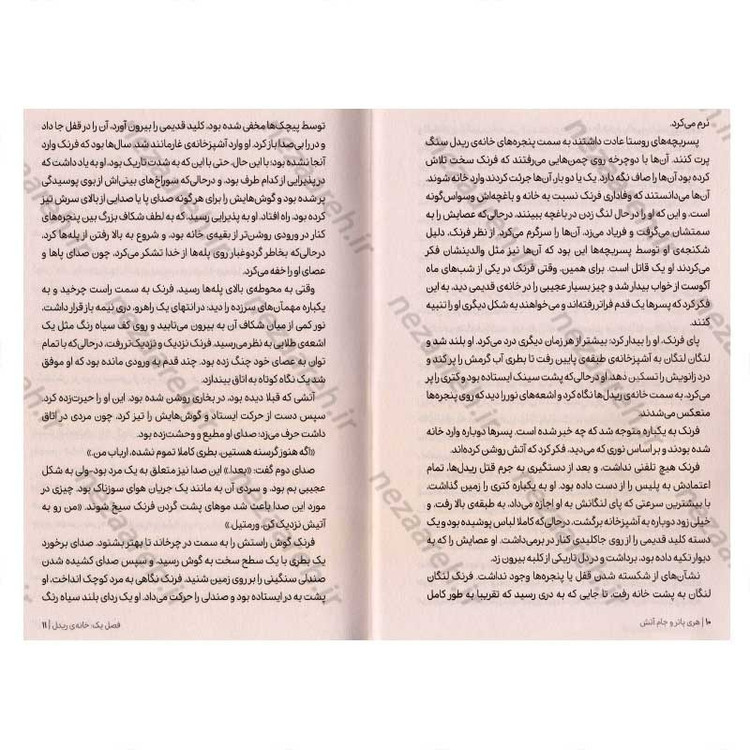 نرم می‌کرد.
پسربچه‌های روستا عادت داشتند به سمت پنجره‌های خانه‌ی ریدل سنگ
پرت کنند. آن‌ها با دوچرخه روی چمن‌هایی می‌رفتند که فرنک سخت تلاش
کرده بود آن‌ها را صاف نگه دارد. یک یا دو بار، آن‌ها جرئت کردند وارد خانه شوند.
آن‌ها می‌دانستند که وفاداری فرنک نسبت به خانه و باغچه‌اش وسواس‌گونه
است. و این که او را در حال لنگ زدن در باغچه ببینند، درحالی‌که عصایش را به
سمتشان می‌گرفت و فریاد می‌زد، آن‌ها را سرگرم می‌کرد. از نظر فرنک، دلیل
شکنجه‌ی او توسط پسربچه‌ها این بود که آن‌ها نیز مثل والدینشان فکر
می‌کردند او یک قاتل است. برای همین، وقتی فرنک در یکی از شب‌های ماه
آگوست از خواب بیدار شد و چیز بسیار عجیبی را در خانه‌ی قدیمی دید، به این
فکر کرد که پسرها یک قدم فراتر رفته‌اند و می‌خواهند به شکل دیگری او را تنبیه
کنند.
پای فرنک، او را بیدار کرد: بیشتر از هر زمان دیگری درد می‌کرد. او بلند شد و
لنگان لنگان به آشپزخانه‌ی طبقه‌ی پایین رفت تا بطری آب گرمش را پر کند و
درد زانویش را تسکین دهد. او درحالی‌که پشت سینک ایستاده بود و کتری را پر
می‌کرد، به سمت خانه‌ی ریدل‌ها نگاه کرد و اشعه‌های نور را دید که روی پنجره‌ها
منعکس می‌شدند.
فرنک به یکباره متوجه شد که چه خبر شده است. پسرها دوباره وارد خانه
شده بودند و بر اساس نوری که می‌دید، فکر کرد که آتش روشن کرده‌اند.
فرنک هیچ تلفنی نداشت، و بعد از دستگیری به جرم قتل ریدل‌ها، تمام
اعتمادش به پلیس را از دست داده بود. او به یکباره کتری را زمین گذاشت،
با بیشترین سرعتی که پای لنگانش به او اجازه می‌داد، به طبقه‌ی بالا رفت، و
خیلی زود دوباره به آشپزخانه برگشت، درحالی‌که کاملا لباس پوشیده بود و یک
دسته کلید قدیمی را از روی جاکلیدی کنار در برمی‌داشت. او عصایش را که به
دیوار تکیه داده بود، برداشت و در دل تاریکی از کلبه بیرون زد.
نشان‌های از شکسته شدن قفل یا پنجره‌ها وجود نداشت. فرنک لنگان
لنگان به پشت خانه رفت، تا جایی که به دری رسید که تقریباً به طور کامل
۱۰ | هری پاتر و جام آتش
توسط پیچک‌ها مخفی شده بود، کلید قدیمی را بیرون آورد، آن را در قفل جا داد
و در را بی‌صدا باز کرد. او وارد آشپزخانه‌ی غارمانند شد. سال‌ها بود که فرنک وارد
آنجا نشده بود؛ با این حال، حتی با این که به شدت تاریک بود، او به یاد داشت که
در پذیرایی از کدام طرف بود، و درحالی‌که سوراخ‌های بینی‌اش از بوی پوسیدگی
پر شده بود و گوش‌هایش را برای هر گونه صدای پا یا صدایی از بالای سرش تیز
کرده بود، راه افتاد. او به پذیرایی رسید، که به لطف شکاف بزرگ بین پنجره‌های
کنار در ورودی روشن‌تر از بقیه‌ی خانه بود، و شروع به بالا رفتن از پله‌ها کرد،
درحالی‌که بخاطر گردوغبار روی پله‌ها از خدا تشکر می‌کرد، چون صدای پاها و
عصای او را خفه می‌کرد.
وقتی به محوطه‌ی بالای پله‌ها رسید، فرنک به سمت راست چرخید و به
یکباره مهمان‌های سرزده را دید: در انتهای یک راهرو، دری نیمه باز قرار داشت،
نور کمی از میان شکاف آن به بیرون می‌تابید و روی کف سیاه رنگ مثل یک
اشعه‌ی طلایی به نظر می‌رسید. فرنک نزدیک و نزدیک‌تر رفت، درحالی‌که با تمام
توان به عصای خود چنگ زده بود. چند قدم به ورودی مانده بود که او موفق
شد یک نگاه کوتاه به اتاق بیندازد.
آتشی که قبلا دیده بود، در بخاری روشن شده بود. این او را حیرت‌زده کرد.
سپس دست از حرکت ایستاد و گوش‌هایش را تیز کرد، چون مردی در اتاق
داشت حرف می‌زد؛ صدای او مطیع و وحشت‌زده بود.
«اگه هنوز گرسنه هستین، بطری کاملا تموم نشده، ارباب من.»
صدای دوم گفت: «بعدا.» این صدا نیز متعلق به یک مرد بود-ولی به شکل
عجیبی بم بود، و سردی آن به مانند یک جریان هوای سوزناک بود. چیزی در
مورد این صدا باعث شد موهای پشت گردن فرنک سیخ شوند. «من رو به
آتیش نزدیک کن، ورمتیل.»
فرنک گوش راستش را به سمت در چرخاند تا بهتر بشنود. صدای برخورد
یک بطری با یک سطح سخت به گوش رسید، و سپس صدای کشیده شدن
صندلی سنگینی را بر روی زمین شنید. فرنک نگاهی به مرد کوچک انداخت، او
پشت به در ایستاده بود و صندلی را حرکت می‌داد. او یک ردای بلند سیاه رنگ
فصل یک: خانه‌ی ریدل | ۱۱
nezaareh.ir